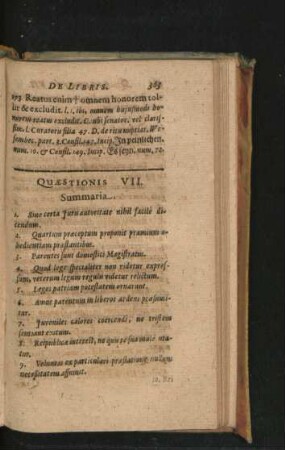 DE LIBRIS. 363
173 Reatus enim omnem honorem tol-
lit & excludit. l. 1. ibi, omnem hujusmodi ho-
norem reatus excludit. C. ubi senator. vel claris-
sim. l. Curatoris filia 47. D. de ritu nuptiar.
sembec. part. 3. Consil. 147. Incip. In puncto
num. 10. & Consil. 149. Incip. num. 72.
QUÆSTIONIS VII.
Summaria.
1. Sine certa Juris autoritate nihil facilè di-
cendum.
2. Quartum præceptum proponit præmium o-
bedientiam præstantibus.
3. Parentes sunt domestici Magistratus.
4. Quod lege specialiter non videtur expres-
sum, veterum legum regulis videtur relictum.
5. Leges patriam potestatem ornarunt.
6. Amor parentum in liberos ardens præsumi-
tur.
7. Juveniles calores coercendi, no tristem
sentiant exitum.
8. Reipublicæ interest, ne quis re sua malè uta-
tur.
9. Voluntas ex particulari præstatione nullam
necessitatem assumit.
10. Fili